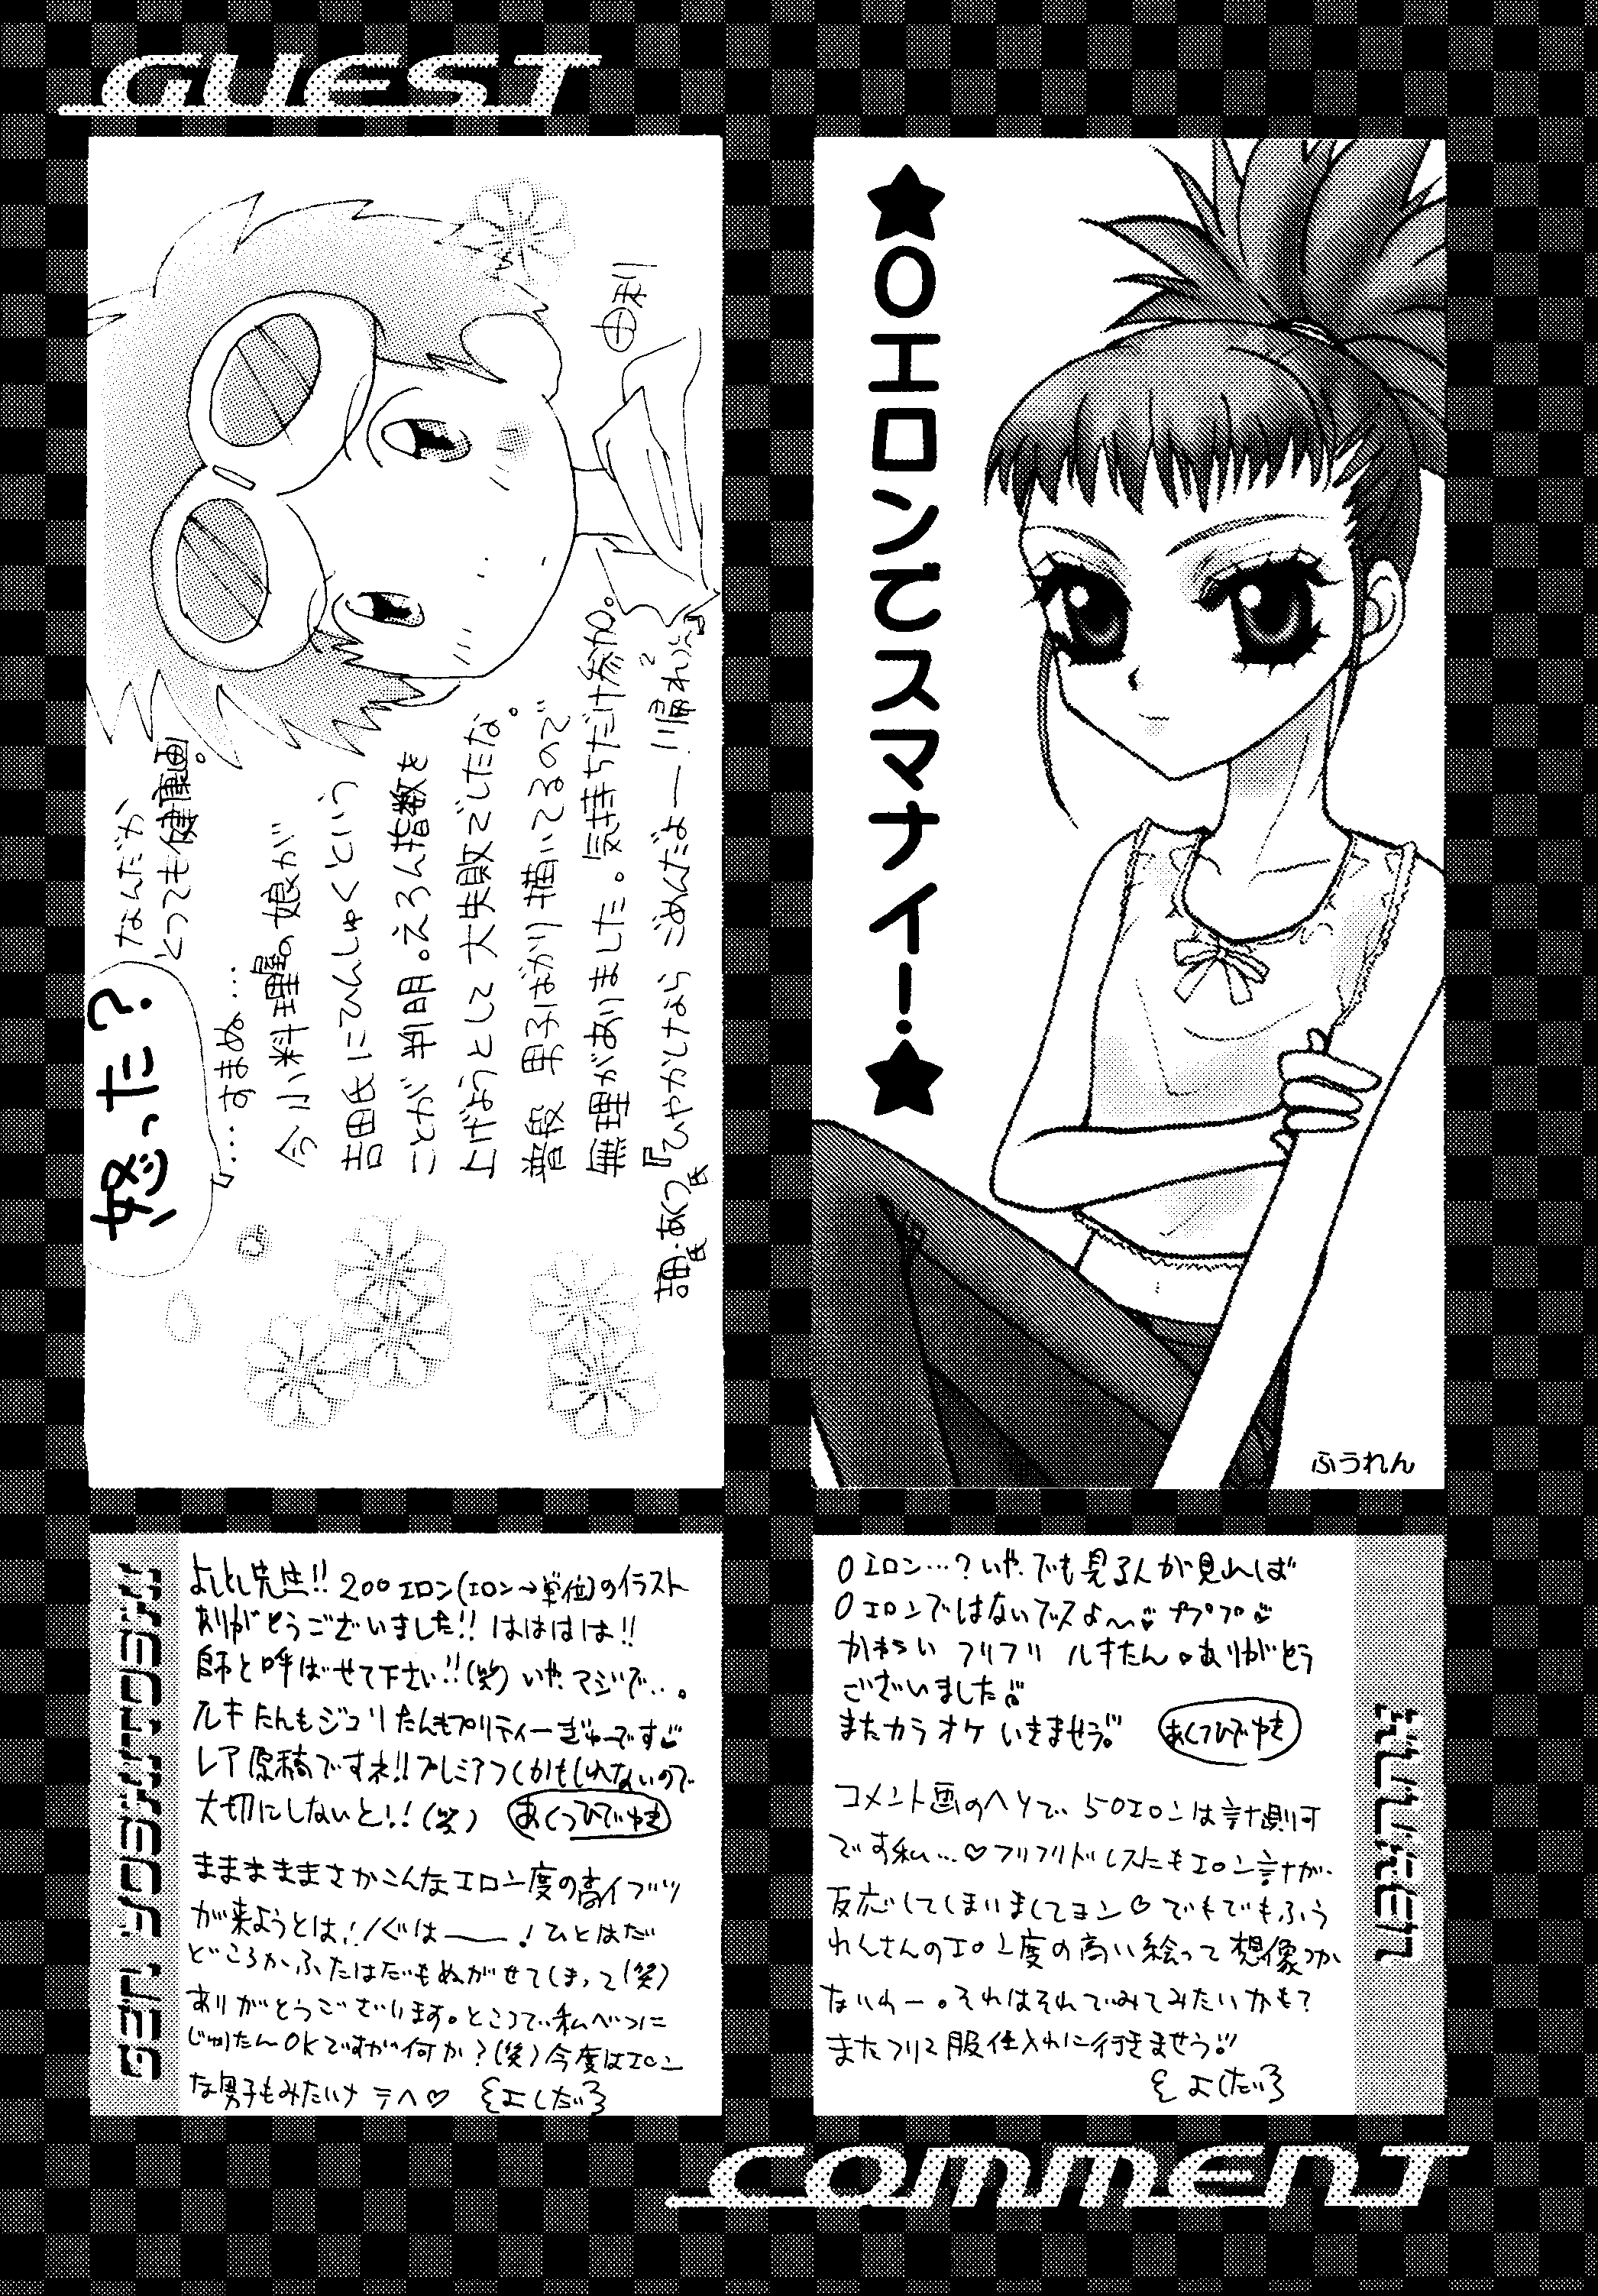 GUEST
★0エロンでスマナイー!★
ふうれん
怒った?
なんだか
とっても健康画。
『…すまぬ…
今小料理屋の娘が
吉田氏にひんしゅくという
ことが判明。えろん指数を
上げようとして大失敗でしたな。
普段男子ばかり描いてるので
無理がありました。気持ちだけ参加。
『ひやかしならごめんだよー!!帰れっ』
0エロン…?いやでも見る人が見れば
0エロンではないでスよ〜 ププププ
かわいいフリフリルキたん ありがとう
ございました
またカラオケいきませう。 あくつひでゆき
コメント画のヘソで50エロンは計測可
です私…♡フリフリドレスにもエロン計が
反応してしまいましてヨン♡でもでもふう
れんさんのエロン度の高い絵って想像つか
ないわー。それはそれでみてみたいかも?
またフリマ服仕入れに行きませう!!
よしだ
よしとし先生!! 200エロン(エロン→単位)のイラスト
ありがとうございました!! はははは!!
師と呼ばせて下さい!!(笑)いやマジで…。
ルキたんもジュリたんもプリティーぎゅーです
レア原稿ですネ!!プレミアつくかもしれないので
大切にしないと!!(笑) あくつひでゆき
まままままさかこんなエロン度の高イブツ
が来ようとは!ぐは——!ひとはだ
どころかふたはだもぬがせてしまって(笑)
ありがとうございます。ところで私べつに
じゅりたんOKですが何か?(笑)今度はエロン
な男子もみたいナ テヘ♡ よしだ
COMMENT